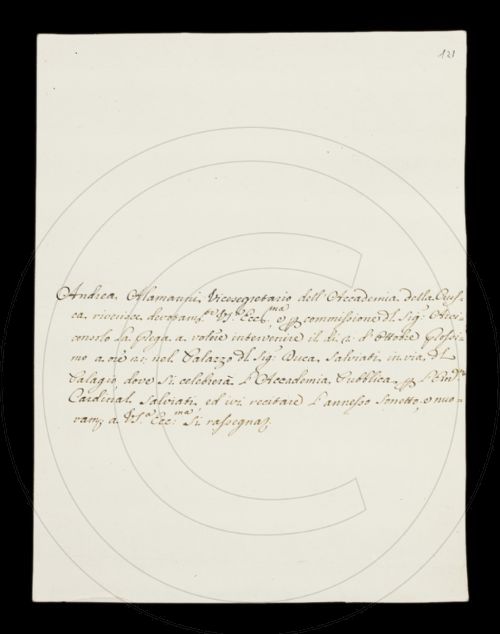 121
Andrea Alamanni Vicesegretario dell'Accademia della Crus-
ca riverisce devotam.te V.S. Ecc.ma, e p commissione dl Sig.r Arci-
consolo La Prega a voler intervenire il dì 2 d'Ottobre Prossi-
mo a ore 21 nel Palazzo dl Sig.r Duca Salviati in via dl
Palagio, dove si celebrerà l'Accademia Pubblica p l'Em.o
Cardinal Salviati, ed ivi recitare l'annesso Sonetto, e nuo-
vam.te a V.S.a Ecc.ma si rassegna.